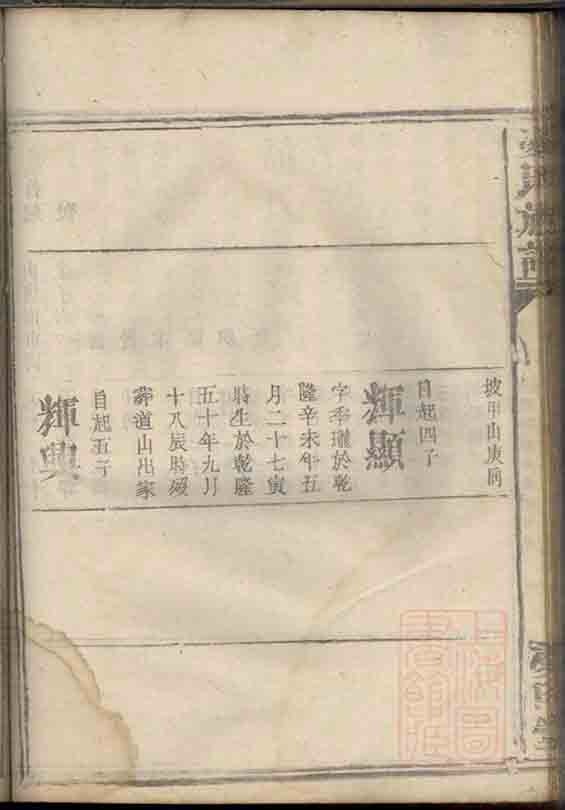 坡甲山庚向
自起四子
輝顯
字季瓏於乾
隆辛未年五
月二十七寅
時生於乾隆
五十年九月
十八辰時歿
葬道山出家
自起五子
輝興
上海圖
書館藏